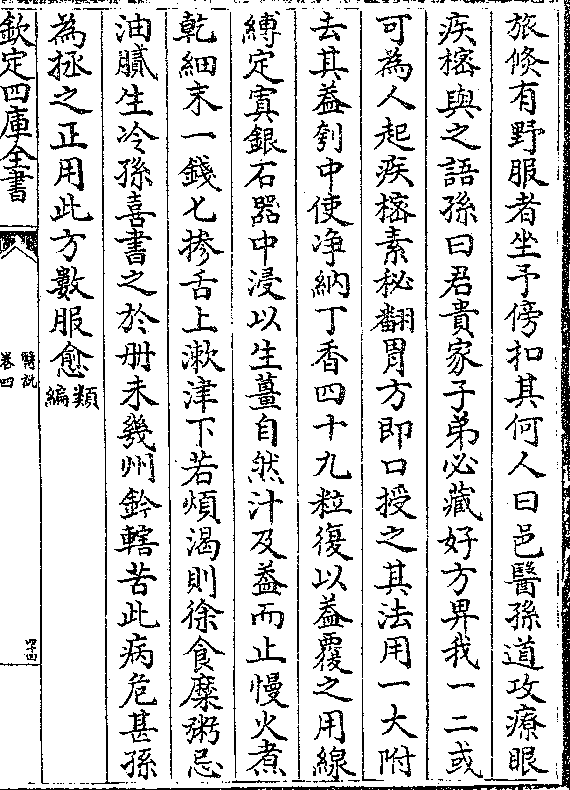 旅倐有野服者坐予傍扣其何人曰邑醫孫道攻療眼
疾𢮿與之語孫曰君貴家子弟必藏好方畀我一二或
可為人起疾𢮿素秘翻胃方即口授之其法用一大附
去其葢刳中使净納丁香四十九粒復以葢覆之用線
縛定寘銀石器中浸以生薑自然汁及葢而止慢火煮
乾細末一錢匕摻舌上漱津下若煩渴則徐食糜粥忌
油膩生冷孫喜書之於册未幾州鈐轄苦此病危甚孫
為拯之正用此方數服愈類編
欽定四庫全書
醫說
卷四
四十四